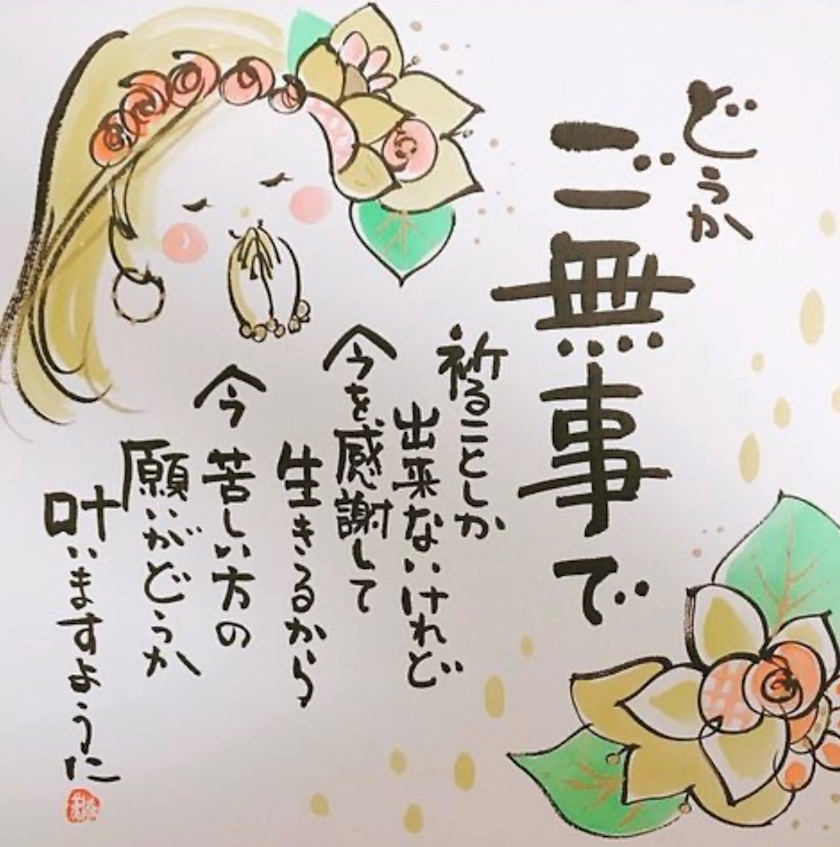 どうか
ご無事で
祈ることしか
出来ないけれど
今を感謝して
生きるから
今苦しい方の
願いがどうか
叶いますように